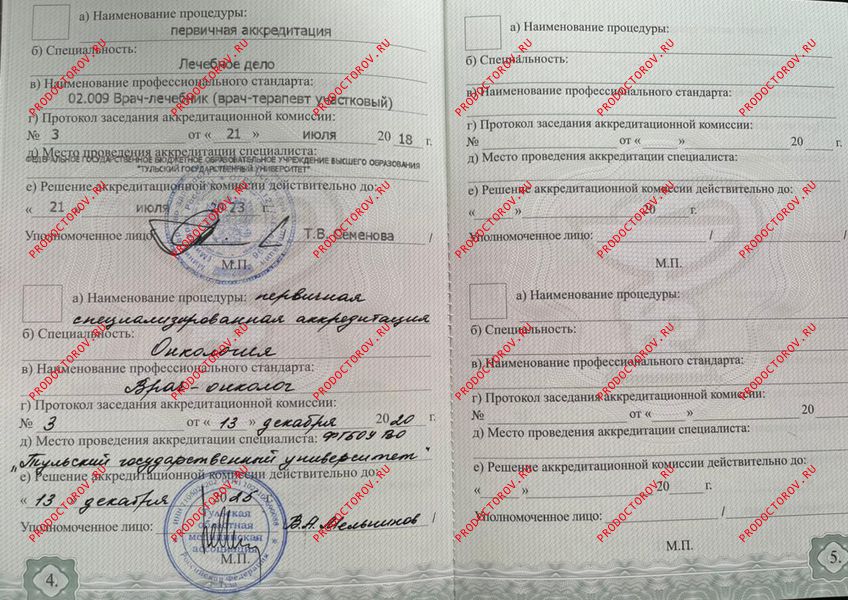 а) Наименование процедуры:
первичная аккредитация
б) Специальность:
Лечебное дело
в) Наименование профессионального стандарта:
02.009 Врач-лечебник (врач-терапевт участковый)
г) Протокол заседания аккредитационной комиссии:
№ 3 от « 21 » июля 20 18 г.
д) Место проведения аккредитации специалиста:
ФЕДЕРАЛЬНОЕ ГОСУДАРСТВЕННОЕ БЮДЖЕТНОЕ ОБРАЗОВАТЕЛЬНОЕ УЧРЕЖДЕНИЕ ВЫСШЕГО ОБРАЗОВАНИЯ
"ТУЛЬСКИЙ ГОСУДАРСТВЕННЫЙ УНИВЕРСИТЕТ"
е) Решение аккредитационной комиссии действительно до:
« 21 июля 20 23 г.
Уполномоченное лицо: Т.В. Семенова /
М.П.
а) Наименование процедуры: первичная
специализированная аккредитация
б) Специальность:
Онкология
в) Наименование профессионального стандарта:
Врач-онколог
г) Протокол заседания аккредитационной комиссии:
№ 3 от « 13 » декабря 2020 г.
д) Место проведения аккредитации специалиста: ФГБОУ ВО
"Тульский государственный университет"
е) Решение аккредитационной комиссии действительно до:
« 13 » декабря 2025 г.
Уполномоченное лицо: В.А. Мельников /
Тульская
областная
медицинская
ассоциация
Российская Федерация
М.П.
4.
а) Наименование процедуры:
б) Специальность:
в) Наименование профессионального стандарта:
г) Протокол заседания аккредитационной комиссии:
№ от « » 20 г.
д) Место проведения аккредитации специалиста:
е) Решение аккредитационной комиссии действительно до:
« » 20 г.
Уполномоченное лицо: / /
М.П.
а) Наименование процедуры:
б) Специальность:
в) Наименование профессионального стандарта:
г) Протокол заседания аккредитационной комиссии:
№ от « » 20
д) Место проведения аккредитации специалиста:
е) Решение аккредитационной комиссии действительно до:
« » 20 г.
Уполномоченное лицо: /
М.П.
5.
PRODOCTOROV.RU